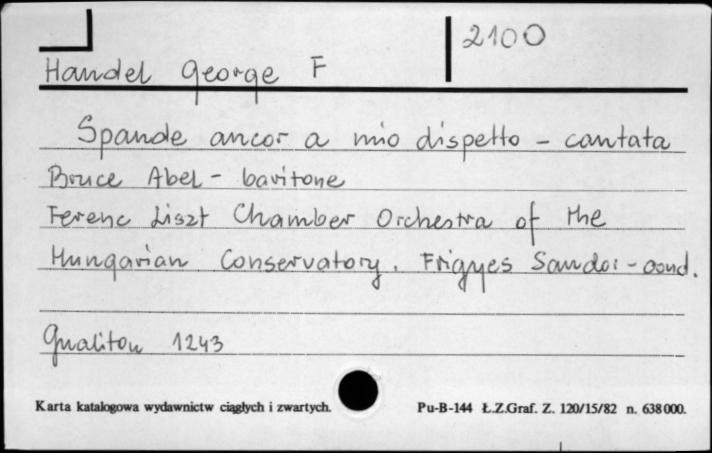 2100
Handel George F
Spande ancor a mio dispetto - cantata
Bruce Abel - baritone
Ferenc Liszt Chamber Orchestra of the
Hungarian Conservatory. Frigyes Sandor - cond.
Qualiton 1243
Karta katalogowa wydawnictw ciągłych i zwartych. Pu-B-144 Ł.Z.Graf. Z. 120/15/82 n. 638000.